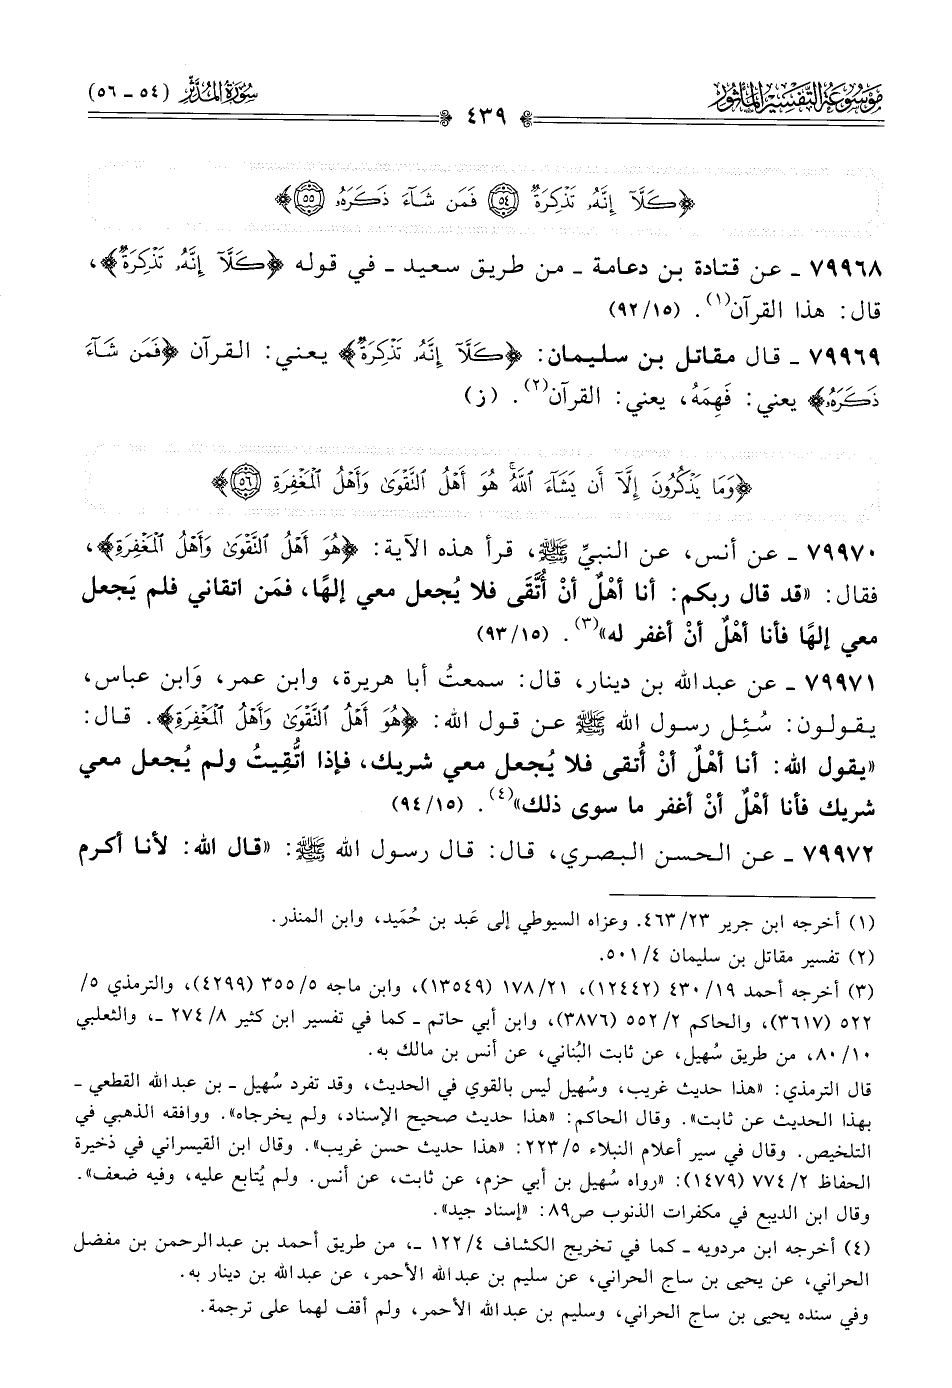 موسوعة التفسير المأثور
سورة المدثر (٥٤ - ٥٦)
٤٣٩
﴿كَلَّآ إِنَّهُۥ تَذْكِرَةٌ ٥٤ فَمَن شَآءَ ذَكَرَهُۥ ٥٥﴾
٧٩٩٦٨ ـ عن قتادة بن دعامة ـ من طريق سعيد ـ في قوله ﴿كَلَّآ إِنَّهُۥ تَذْكِرَةٌ﴾،
قال: هذا القرآن(١). (١٥/ ٩٢)
٧٩٩٦٩ ـ قال مقاتل بن سليمان: ﴿كَلَّآ إِنَّهُۥ تَذْكِرَةٌ﴾ يعني: القرآن ﴿فَمَن شَآءَ
ذَكَرَهُۥ﴾ يعني: فَهِمَهُ، يعني: القرآن(٢). (ز)
﴿وَمَا يَذْكُرُونَ إِلَّآ أَن يَشَآءَ ٱللَّهُۚ هُوَ أَهْلُ ٱلتَّقْوَىٰ وَأَهْلُ ٱلْمَغْفِرَةِ ٥٦﴾
٧٩٩٧٠ ـ عن أنس، عن النبيِّ ﷺ، قرأ هذه الآية: ﴿هُوَ أَهْلُ ٱلتَّقْوَىٰ وَأَهْلُ ٱلْمَغْفِرَةِ﴾،
فقال: «قد قال ربكم: أنا أهْلٌ أنْ أُتَّقَى فلا يُجعل معي إلهًا، فمَن اتقاني فلم يَجعل
معي إلهًا فأنا أهْلٌ أنْ أغفر له»(٣). (١٥/ ٩٣)
٧٩٩٧١ ـ عن عبدالله بن دينار، قال: سمعتُ أبا هريرة، وابن عمر، وَابن عباس،
يقولون: سُئِل رسول الله ﷺ عن قول الله: ﴿هُوَ أَهْلُ ٱلتَّقْوَىٰ وَأَهْلُ ٱلْمَغْفِرَةِ﴾. قال:
«يقول الله: أنا أهْلٌ أنْ أُتقى فلا يُجعل معي شريك، فإذا اتُّقِيتُ ولم يُجعل معي
شريك فأنا أهْلٌ أنْ أغفر ما سوى ذلك»(٤). (١٥/ ٩٤)
٧٩٩٧٢ ـ عن الحسن البصري، قال: قال رسول الله ﷺ: «قال الله: لأنا أكرم
(١) أخرجه ابن جرير ٢٣/ ٤٦٣. وعزاه السيوطي إلى عَبد بن حُمَيد، وابن المنذر.
(٢) تفسير مقاتل بن سليمان ٤/ ٥٠١.
(٣) أخرجه أحمد ١٩/ ٤٣٠ (١٢٤٤٢)، ٢١/ ١٧٨ (١٣٥٤٩)، وابن ماجه ٥/ ٣٥٥ (٤٢٩٩)، والترمذي ٥/
٥٢٢ (٣٦١٧)، والحاكم ٢/ ٥٥٢ (٣٨٧٦)، وابن أبي حاتم ـ كما في تفسير ابن كثير ٨/ ٢٧٤ ـ، والثعلبي
١٠/ ٨٠، من طريق سُهيل، عن ثابت البُناني، عن أنس بن مالك به.
قال الترمذي: «هذا حديث غريب، وسُهيل ليس بالقوي في الحديث، وقد تفرد سُهيل ـ بن عبدالله القطعي ـ
بهذا الحديث عن ثابت». وقال الحاكم: «هذا حديث صحيح الإسناد، ولم يخرجاه». ووافقه الذهبي في
التلخيص. وقال في سير أعلام النبلاء ٥/ ٢٢٣: «هذا حديث حسن غريب». وقال ابن القيسراني في ذخيرة
الحفاظ ٢/ ٧٧٤ (١٤٧٩): «رواه سُهيل بن أبي حزم، عن ثابت، عن أنس. ولم يُتابع عليه، وفيه ضعف».
وقال ابن الديبع في مكفرات الذنوب ص٨٩: «إسناد جيد».
(٤) أخرجه ابن مردويه ـ كما في تخريج الكشاف ٤/ ١٢٢ ـ، من طريق أحمد بن عبدالرحمن بن مفضل
الحراني، عن يحيى بن ساج الحراني، عن سليم بن عبدالله الأحمر، عن عبدالله بن دينار به.
وفي سنده يحيى بن ساج الحراني، وسليم بن عبدالله الأحمر، ولم أقف لهما على ترجمة.